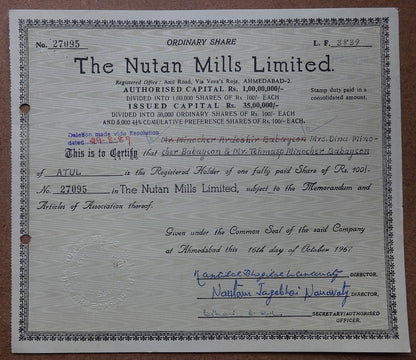 ORDINARY SHARE
No. 27095 L. F. 3839
The Nutan Mills Limited.
Registered Office: Asul Road, Via Vora's Roja, AHMEDABAD-2.
AUTHORISED CAPITAL Rs. 1,00,00,000/-
DIVIDED INTO 1,00,000 SHARES OF Rs. 100/- EACH
ISSUED CAPITAL Rs. 35,00,000/-
DIVIDED INTO 30,000 ORDINARY SHARES OF Rs. 100/- EACH
AND 5,000 4½% CUMULATIVE PREFERENCE SHARES OF Rs. 100/- EACH.
Stamp duty paid in a
consolidated amount.
Deletion made vide Resolution
dated 24-2-89
Mr. Minocher Ardeshir Babaycon Mrs. Dina Mino-
This is to Certify that cher Babaycon & Mr. Tehmasp Minocher Babaycon
of ATUL is the Registered Holder of one fully paid Share of Rs. 100/-
No. 27095 in The Nutan Mills Limited, subject to the Memorandum and
Articles of Association thereof.
Given under the Common Seal of the said Company
at Ahmedabad this 16th day of October 1967
DIRECTOR,
DIRECTOR,
SECRETARY/AUTHORISED
OFFICER.